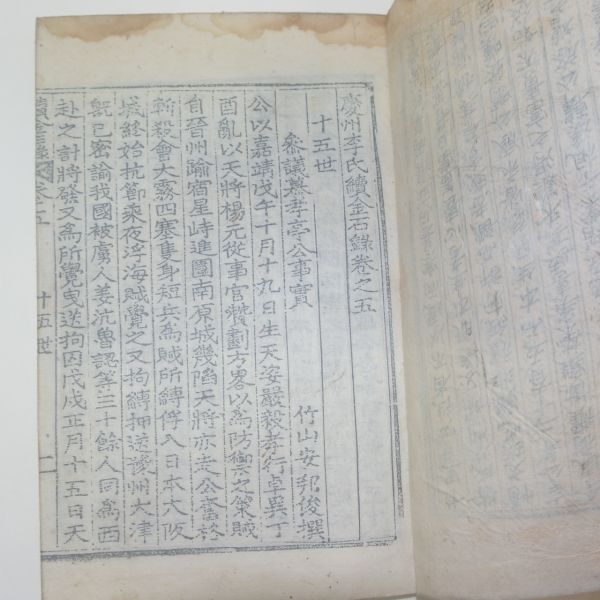 慶州李氏續金石錄卷之五
十五世
參議慕孝亭公事實
竹山安邦俊撰
公以嘉靖戊午十月十九日生天姿嚴毅孝行卓異丁
酉亂以天將楊元從事官贊劃方畧以為防禦之策賊
自晉州踰宿星峙進圍南原城幾陷天將亦走公奮
斬殺會大霧四塞隻身短兵為賊所縛俘入日本大阪
城終始抗節乘夜浮海賊覺之又拘縛押送豫州大津
旣已密諭我國被虜人姜沆魯認等三十餘人同為西
赴之計將發又為所覺曳送拘囚戊戌正月十五日天
續金石錄 卷之五
十五世
一